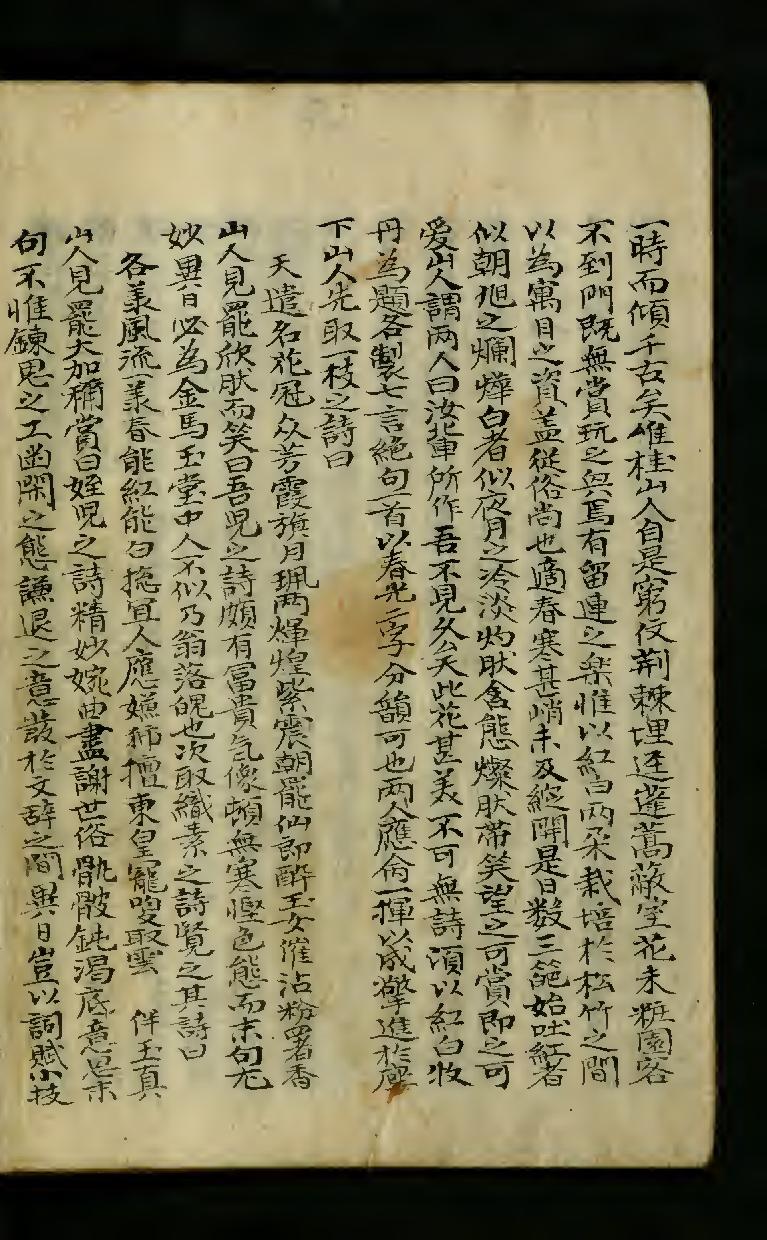 一時而傾千古矣雄桂山人自是窮佼荆棘埋逕蓬蒿蔽室花未粧園客
不到門既無賞玩之興焉有留連之樂惟以紅白兩朶栽培於松竹之間
以為寓目之資盖從俗尚也適春寒甚峭未及綻開是日数三葩始吐紅者
似朝旭之爛燁白者似夜月之冷淡灼肰含態燦肰帶笑望之可賞即之可
愛山人謂两人曰汝輩所作吾不見久矣此花甚美不可無詩湏以紅白牧
丹為題各製七言絕句一首以春光二字分韻可也两人應命一揮以成擎進於座
下山人先取一枝之詩曰
天遣名花冠众芳霞旗月珮两煇煌紫震朝罷仙郎醉玉女催沾粉署香
山人見罷欣肰而笑曰吾児之詩頗有富貴气像頓無寒慳色態而末句尤
妙異日必為金馬玉堂中人不似乃翁落魄也次取織素之詩覽之其詩曰
各羕風流一羕春能紅能白揔宜人應嫌独擅東皇寵喚取雲 伴玉真
山人見罷大加稱賞曰姪児之詩精妙婉曲盡謝世俗骫骳鈍濁底意思末
句不惟鍊思之工幽閑之態謙退之意發於文辞之間異日豈以詞賦小技